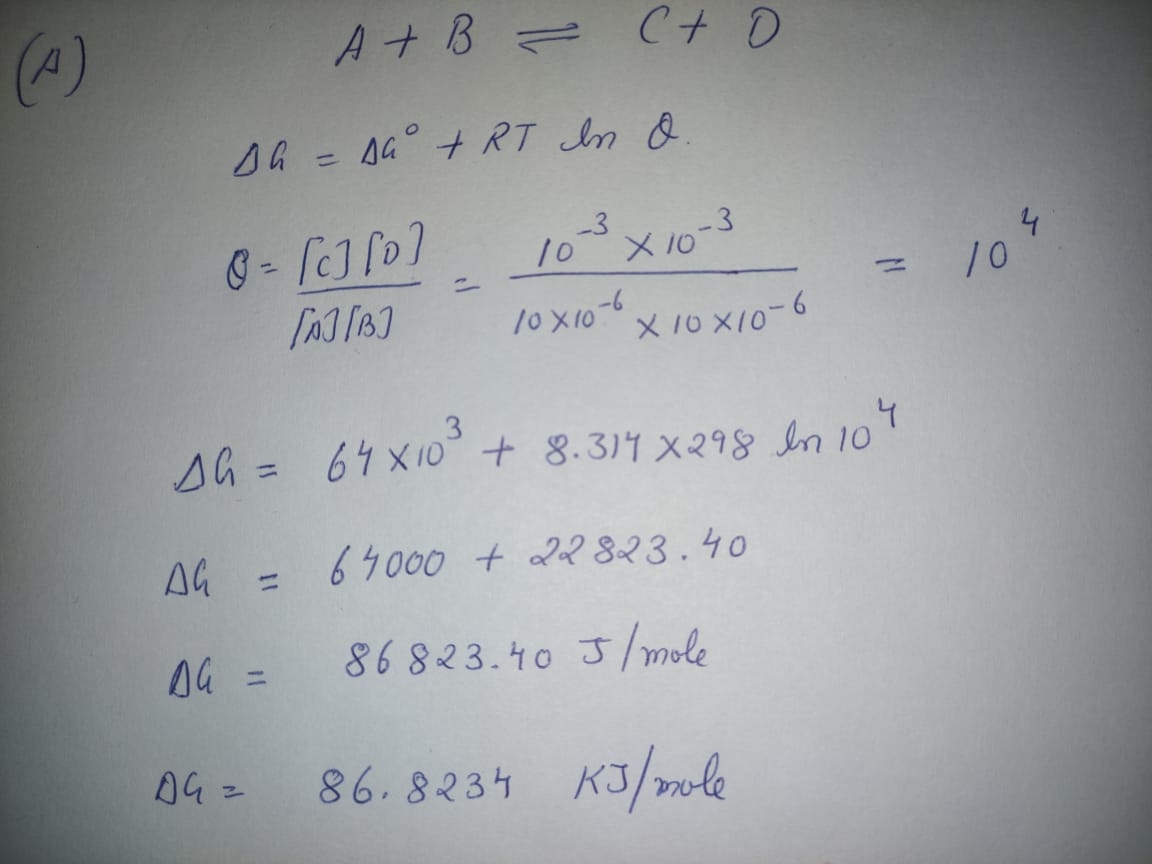 (A) A + B ⇌ C + D
ΔG = ΔG° + RT ln Q.
Q = [C][D] / [A][B] = 10⁻³ × 10⁻³ / 10×10⁻⁶ × 10×10⁻⁶ = 10⁴
ΔG = 64×10³ + 8.314×298 ln 10⁴
ΔG = 64000 + 22823.40
ΔG = 86823.40 J/mole
ΔG = 86.8234 KJ/mole